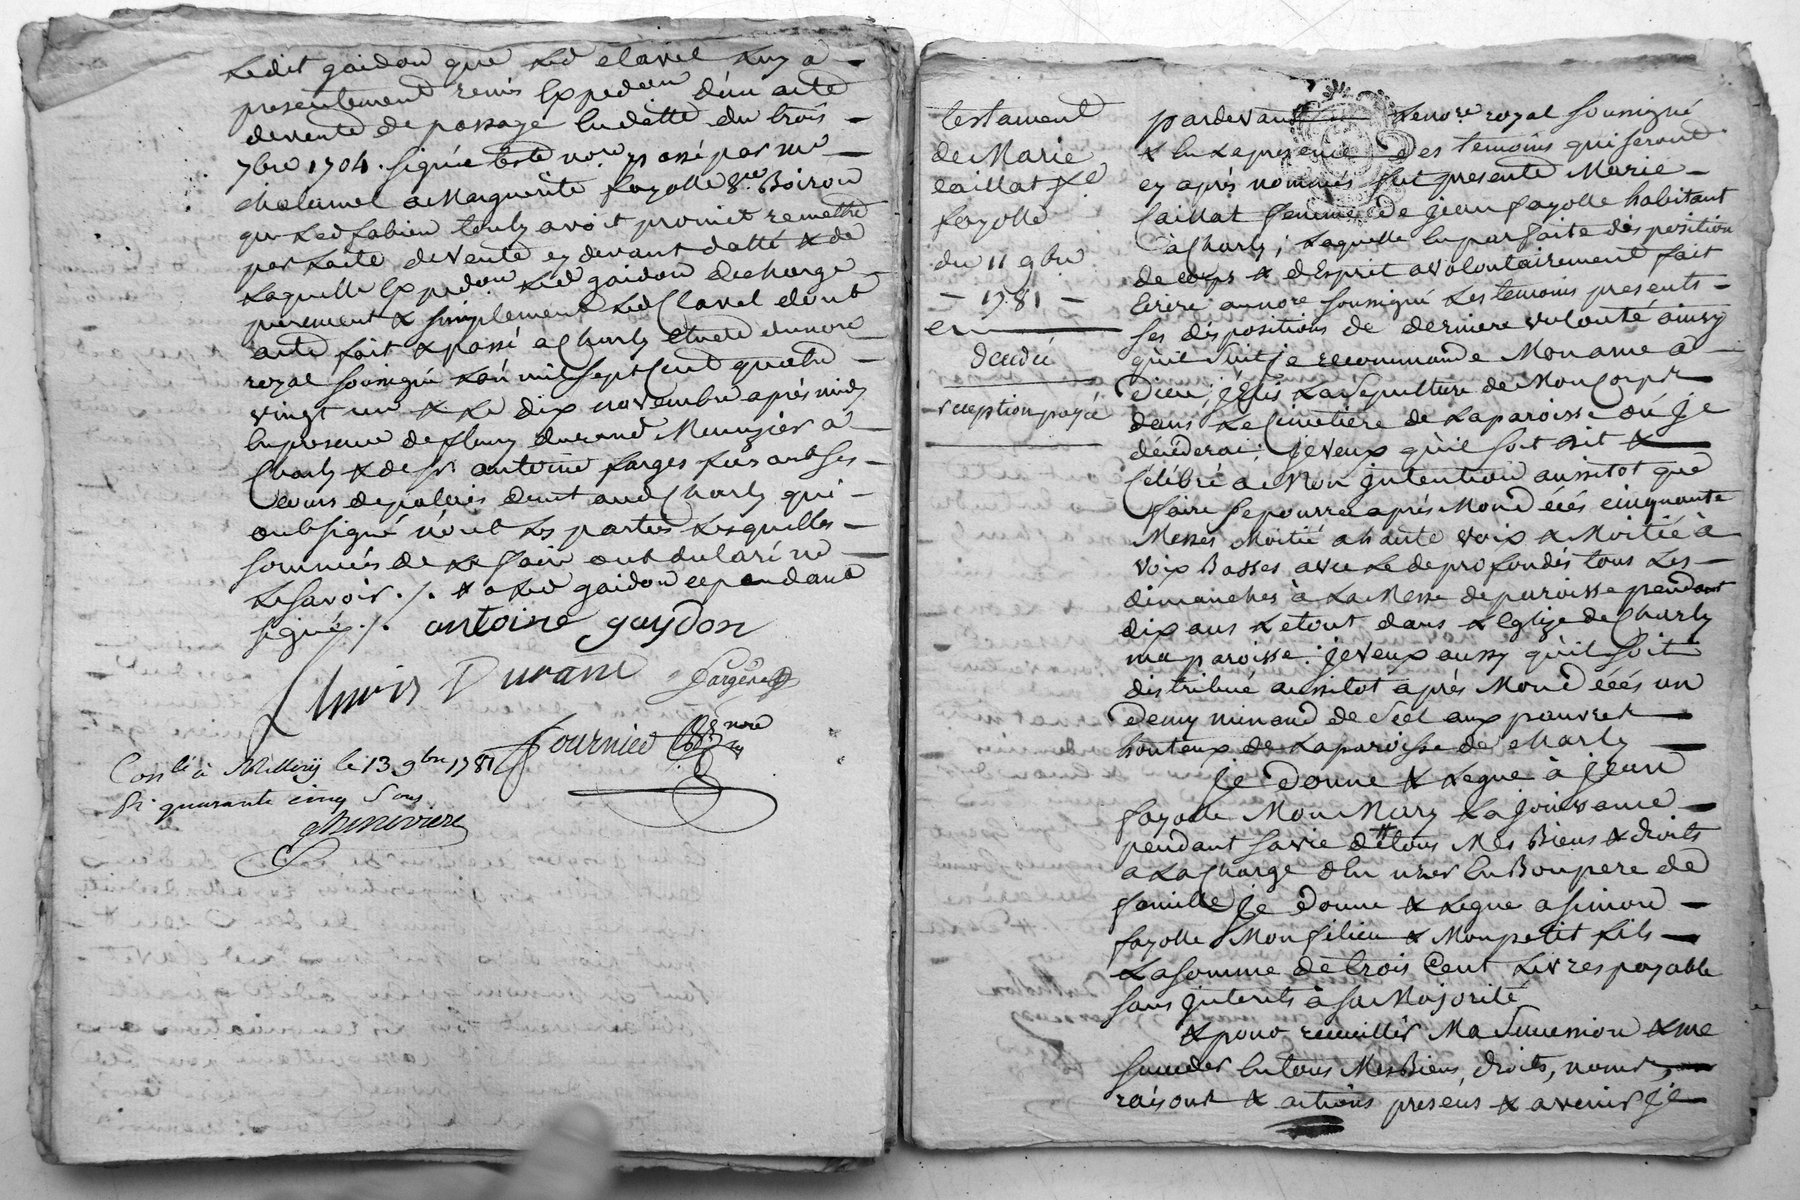 Ledit gaidon que led Clavel luy a
presentement remis Expedon d'un acte
de vente de passage en datte du trois
7bre 1704. signée Este nore passé par Me
chalamel a Marguerite fayolle Boiron
que led fabien avoit promit remettre
par Lacte de vente cy devant datté & de
Laquelle Expedon Led gaidon decharge
purement & simplement Led Clavel dont
acte fait & passé a Charly Etude du nore
royal soussigné L'an mil sept Cent quatre
vingt un & Le dix novembre après midy
En presence de fleury durand Meunuzier a
Charly & de sr antoine farges Luis
Cours de palais dem't aud Charly qui
ont signé n'ont les parties Lesquelles
sommées de Le faire ont declaré ne
Le savoir ./. & a Led gaidon cependant
signé ./. antoine gaydon
Durand farges
fournier nore
Conlé à Millery le 13 9bre 1781
R. quarante cinq Sous
Chineviere
testament
de Marie
caillat fe
fayolle
du 11 9bre
- 1781 -
decedée
reception payée
pardevant Lenore royal soussigné
& En La presence des temoins qui seront
cy après nommés fut presente Marie
Caillat femme de jean fayolle habitant
à Charly; Laquelle En parfaite disposition
de corps & d'Esprit a volontairement fait
Ecrire au nore soussigné Les temoins presents
ses dispositions de derniere volonté ainsy
quil suit je recommande Mon ame a
Dieu; j'élis La Sepulture de Mon Corps
dans Le Cimetière de La paroisse où je
décéderai; je veux qu'il soit dit &
Célébré a Mon jntention aussitot que
faire se pourra après Mon décés cinquante
Messes Moitié a haute voix & Moitié à
voix Basses avec Le de profondis tous Les
dimanches à La Messe de paroisse pendant
dix ans & le tout dans L'Eglize de Charly
ma paroisse: je veux aussy qu'il soit
distribué aussitot après Mon décés un
demy minaud de Sel aux pauvres
honteux de La paroisse de Charly
je donne & Legue à jean
fayolle Mon Mary La jouissance
pendant sa vie de tous Mes Biens & droits
a La Charge d'En user En Bon pere de
famille je donne & Legue a simond
fayolle Mon filieu & Mon petit fils
La somme de trois Cent Livres payable
sans jnterets à sa Majorité
& pour recueillir Ma Succession & me
succeder En tous Mes Biens, droits, noms,
raisons & actions presens & avenir je